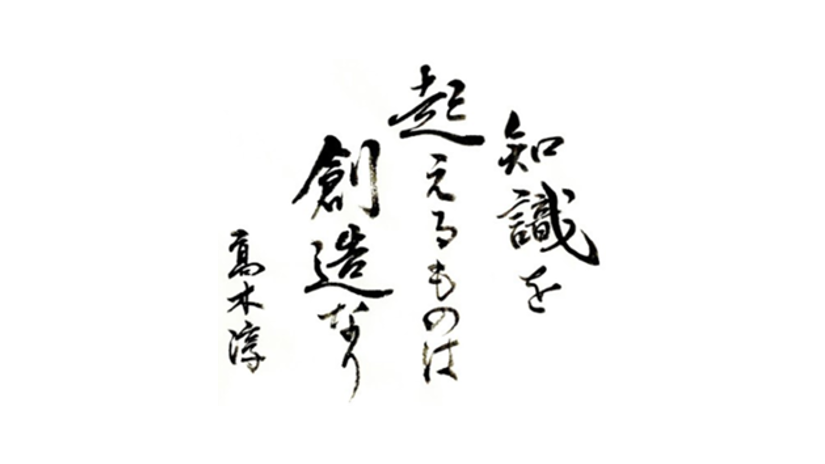 知識を
超えるものは
創造なり
高木淳